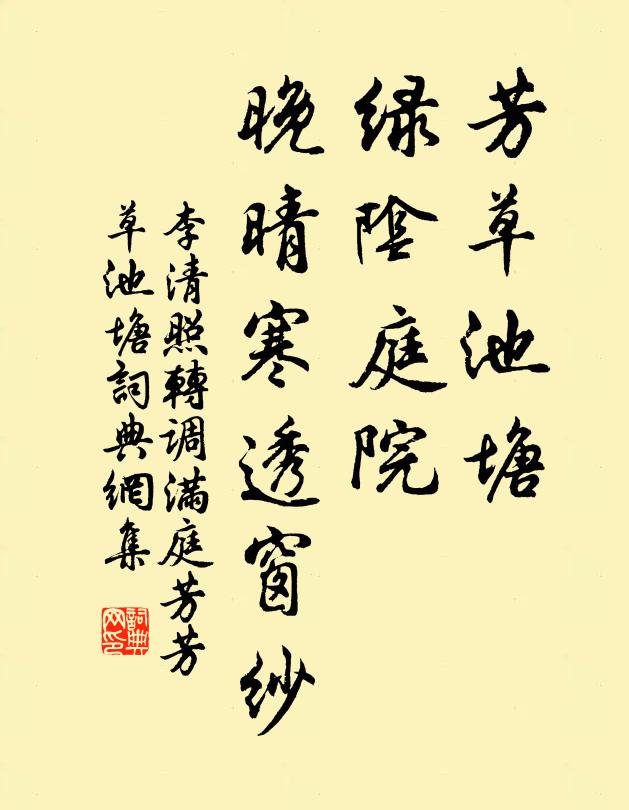 芳草池塘
緑陰庭院
晚晴寒透窗紗
李清照轉調滿庭芳芳
草池塘詞典網集
詞典
网印